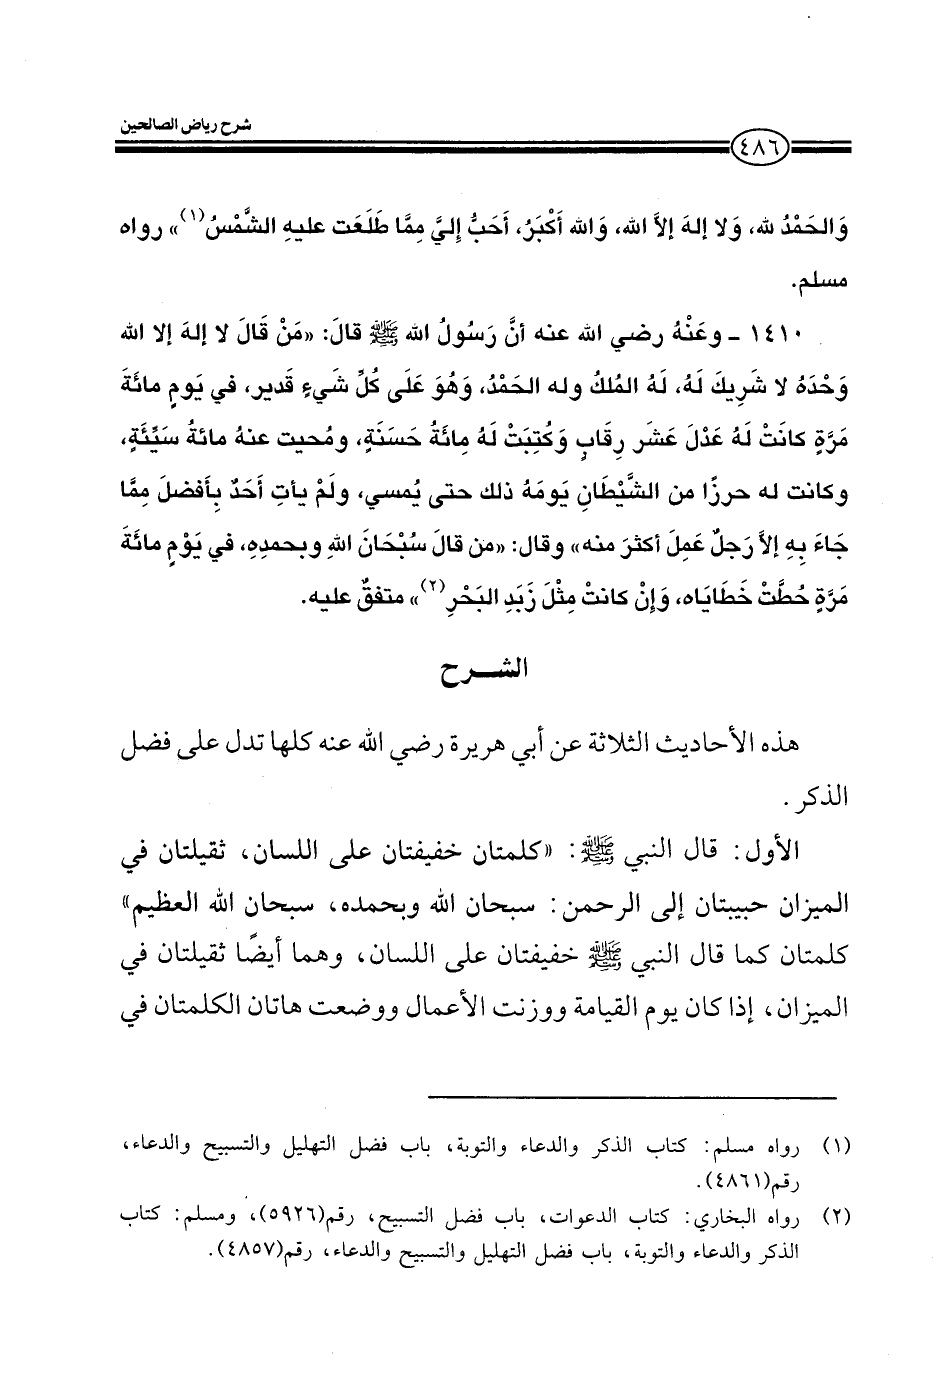 شرح رياض الصالحين
٤٨٦
وَالحَمْدُ لله، وَلا إلهَ إلاَّ الله، وَالله أَكْبَرُ، أَحَبُّ إليَّ مِمَّا طَلَعَت عليهِ الشَّمْسُ(١)» رواه
مسلم.
١٤١٠ ـ وعَنْهُ رضي الله عنه أنَّ رَسُولُ الله ﷺ قالَ: «مَنْ قَالَ لا إلهَ إلا الله
وَحْدَهُ لا شَرِيكَ لَهُ، لَهُ المُلكُ وله الحَمْدُ، وَهُوَ عَلَى كُلِّ شَيءٍ قَدير، في يَومٍ مائَةَ
مَرَّةٍ كانَتْ لَهُ عَدْلَ عَشَر رِقَابٍ وَكُتِبَتْ لَهُ مِائَةُ حَسَنَةٍ، ومُحيت عنهُ مائةُ سَيِّئَةٍ،
وكانت له حرزًا من الشَّيْطَانِ يَومَهُ ذلك حتى يُمسي، ولَمْ يأتِ أحَدٌ بِأفضلَ مِمَّا
جَاءَ بِهِ إلاَّ رَجلٌ عَمِلَ أكثرَ منه» وقال: «من قالَ سُبْحَانَ اللهِ وبحمدِهِ، في يَوْمٍ مائَةَ
مَرَّةٍ حُطَّتْ خَطَايَاه، وَإنْ كانتْ مِثْلَ زَبَدِ البَحْرِ(٢)» متفقٌ عليه.
الشـــرح
هذه الأحاديث الثلاثة عن أبي هريرة رضي الله عنه كلها تدل على فضل
الذكر.
الأول: قال النبي ﷺ: «كلمتان خفيفتان على اللسان، ثقيلتان في
الميزان حبيبتان إلى الرحمن: سبحان الله وبحمده، سبحان الله العظيم»
كلمتان كما قال النبي ﷺ خفيفتان على اللسان، وهما أيضًا ثقيلتان في
الميزان، إذا كان يوم القيامة ووزنت الأعمال ووضعت هاتان الكلمتان في
(١) رواه مسلم: كتاب الذكر والدعاء والتوبة، باب فضل التهليل والتسبيح والدعاء،
رقم(٤٨٦١).
(٢) رواه البخاري: كتاب الدعوات، باب فضل التسبيح، رقم(٥٩٢٦)، ومسلم: كتاب
الذكر والدعاء والتوبة، باب فضل التهليل والتسبيح والدعاء، رقم(٤٨٥٧).